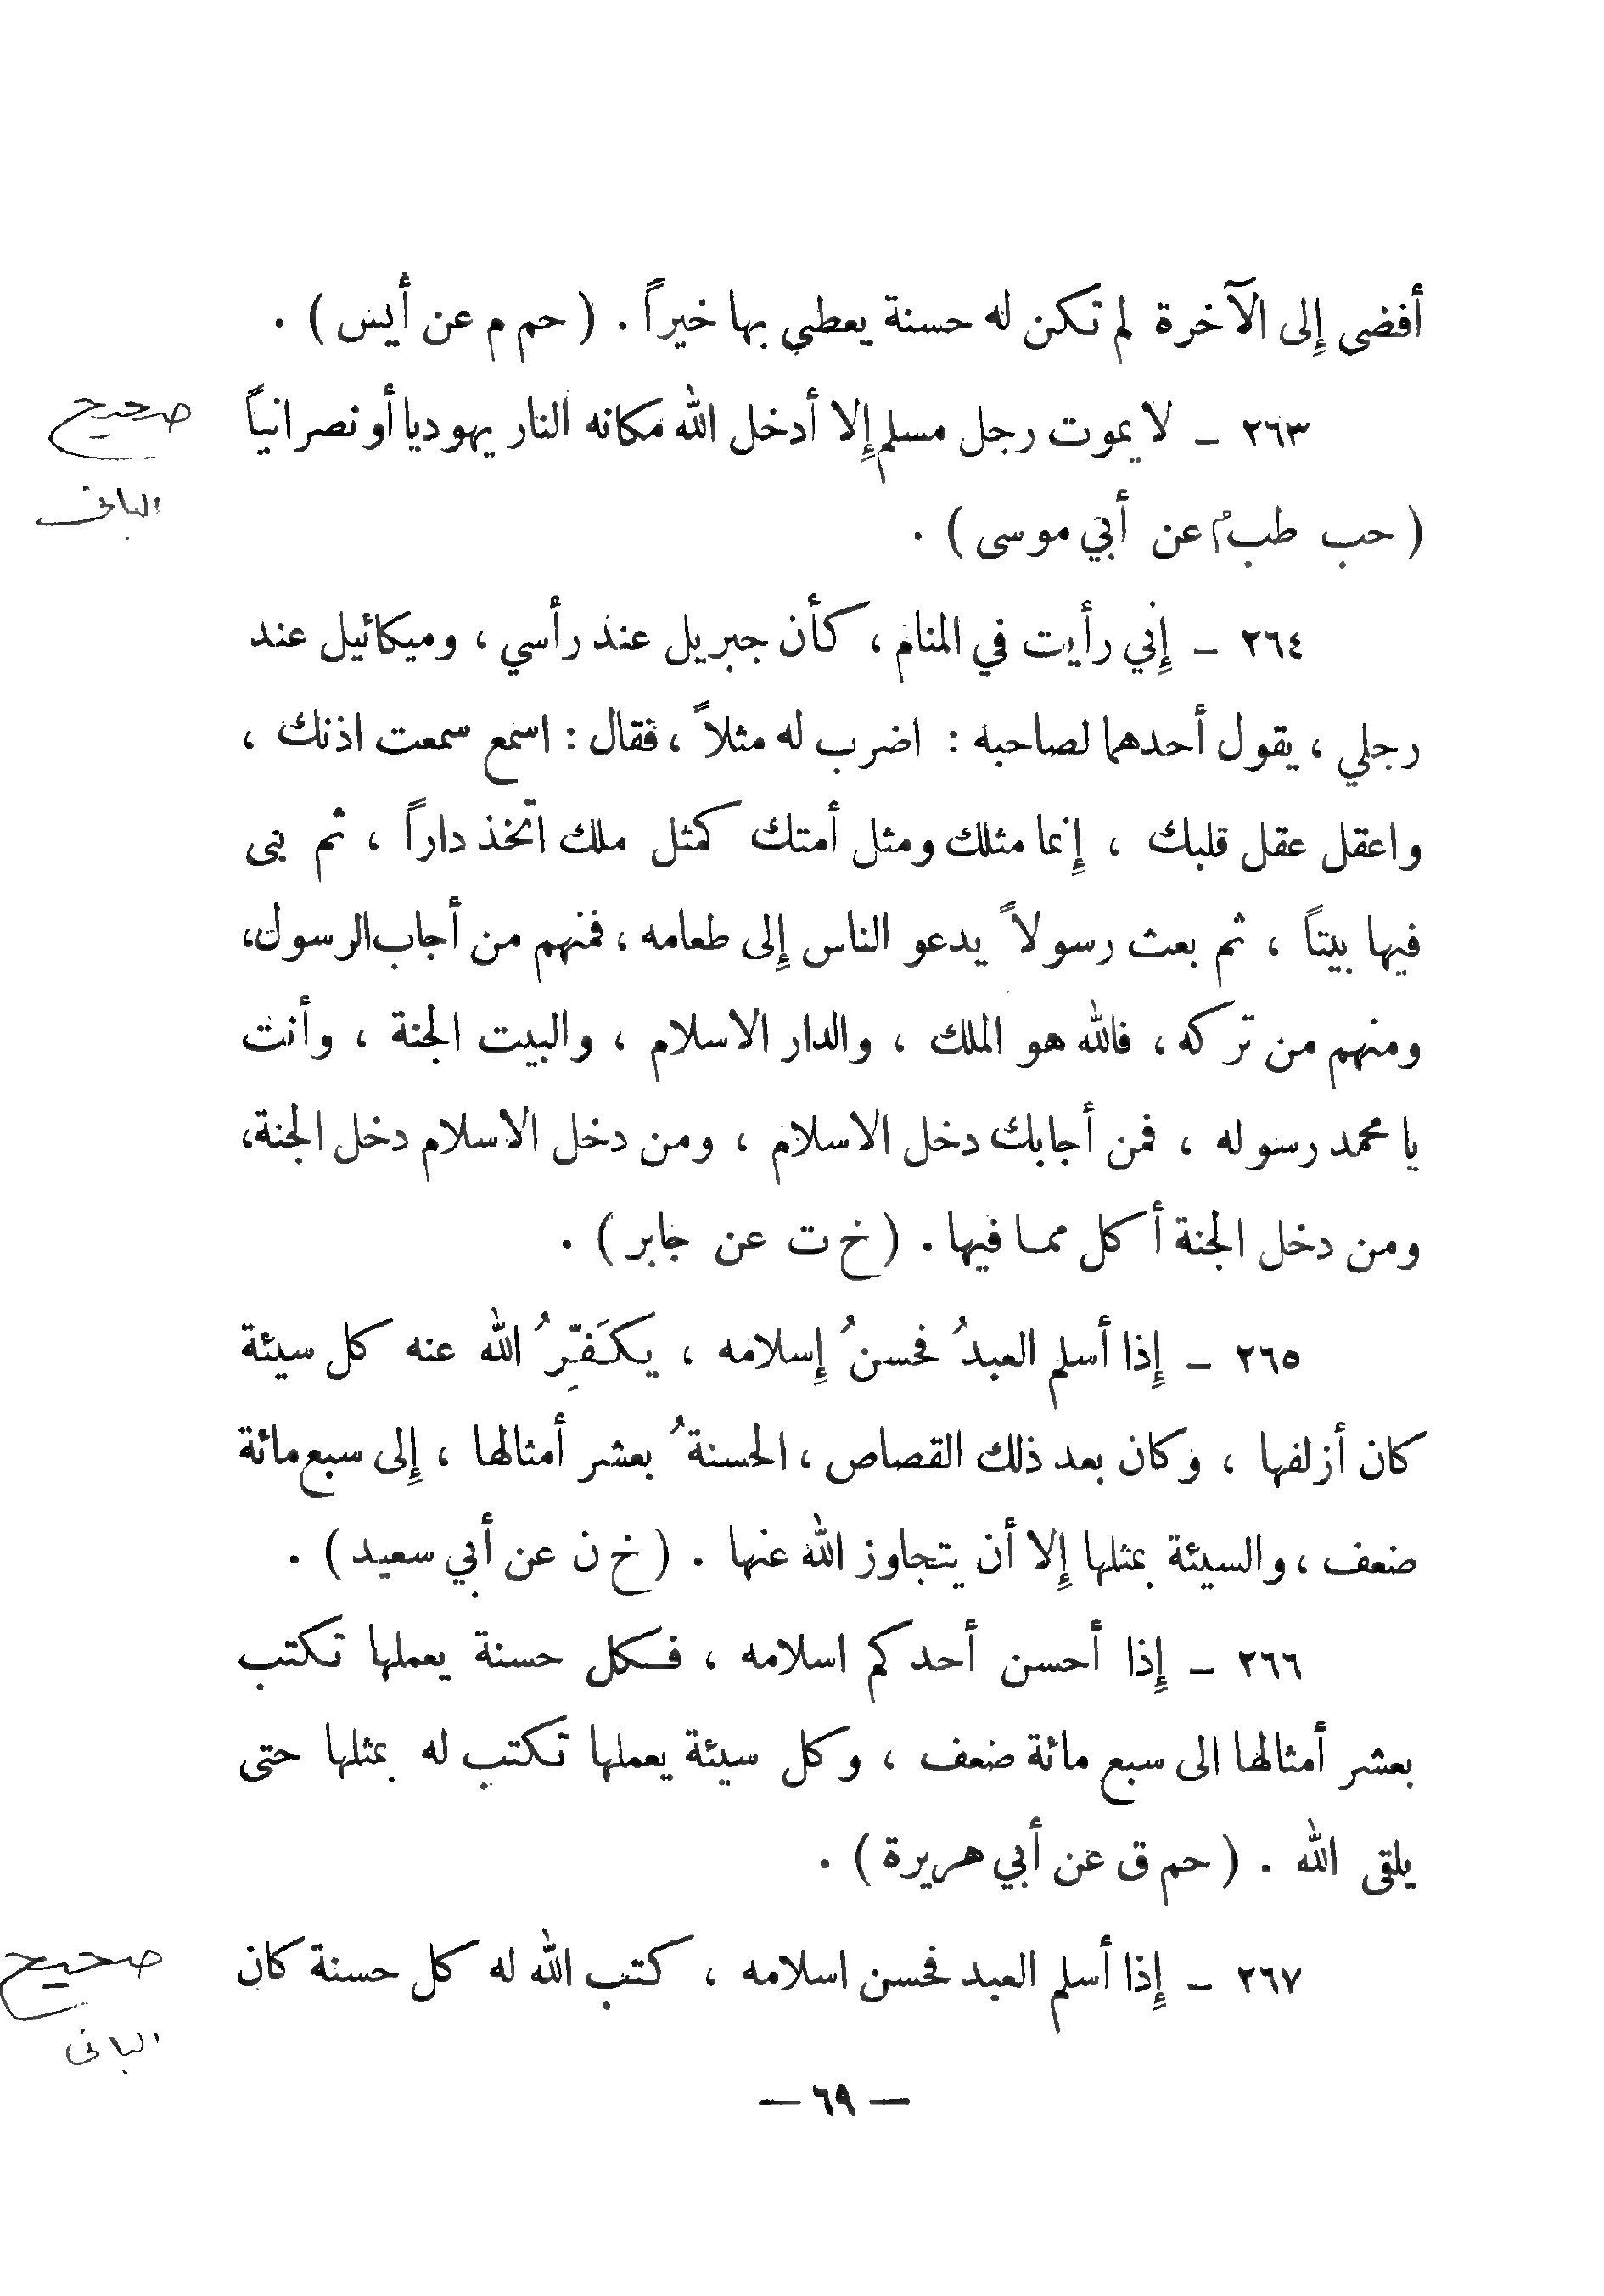 أفضى إِلى الآخرة لم تكن له حسنة يعطي بها خيراً . ( حم م عن أنس ) .
٢٦٣ ـ لا يموت رجل مسلم إِلا أدخل الله مكانه النار يهوديا أو نصرانياً
صحيح
الباني
( حب طب عن أبي موسى ) .
٢٦٤ ـ إِني رأيت في المنام ، كأن جبريل عند رأسي ، وميكائيل عند
رجلي ، يقول أحدهما لصاحبه : اضرب له مثلاً ، فقال : اسمع سمعت اذنك ،
واعقل عقل قلبك ، إِنما مثلك ومثل أمتك كمثل ملك اتخذ داراً ، ثم بنى
فيها بيتاً ، ثم بعث رسولاً يدعو الناس إِلى طعامه ، فمنهم من أجاب الرسول ،
ومنهم من تركه ، فالله هو الملك ، والدار الاسلام ، والبيت الجنة ، وأنت
يا محمد رسوله ، فمن أجابك دخل الاسلام ، ومن دخل الاسلام دخل الجنة ،
ومن دخل الجنة أكل مما فيها . ( خ ت عن جابر ) .
٢٦٥ ـ إِذا أسلم العبدُ فحسنُ إِسلامه ، يكَفِّرُ الله عنه كل سيئة
كان أزلفها ، وكان بعد ذلك القصاص ، الحسنةُ بعشر أمثالها ، إِلى سبع مائة
ضعف ، والسيئة بمثلها إِلا أن يتجاوز الله عنها . ( خ ن عن أبي سعيد ) .
٢٦٦ ـ إِذا أحسن أحدكم اسلامه ، فكل حسنة يعملها تكتب
بعشر أمثالها الى سبع مائة ضعف ، وكل سيئة يعملها تكتب له بمثلها حتى
يلقى الله . ( حم ق عن أبي هريرة ) .
٢٦٧ ـ إِذا أسلم العبد فحسن اسلامه ، كتب الله له كل حسنة كان
صحيح
الباني
— ٦٩ —